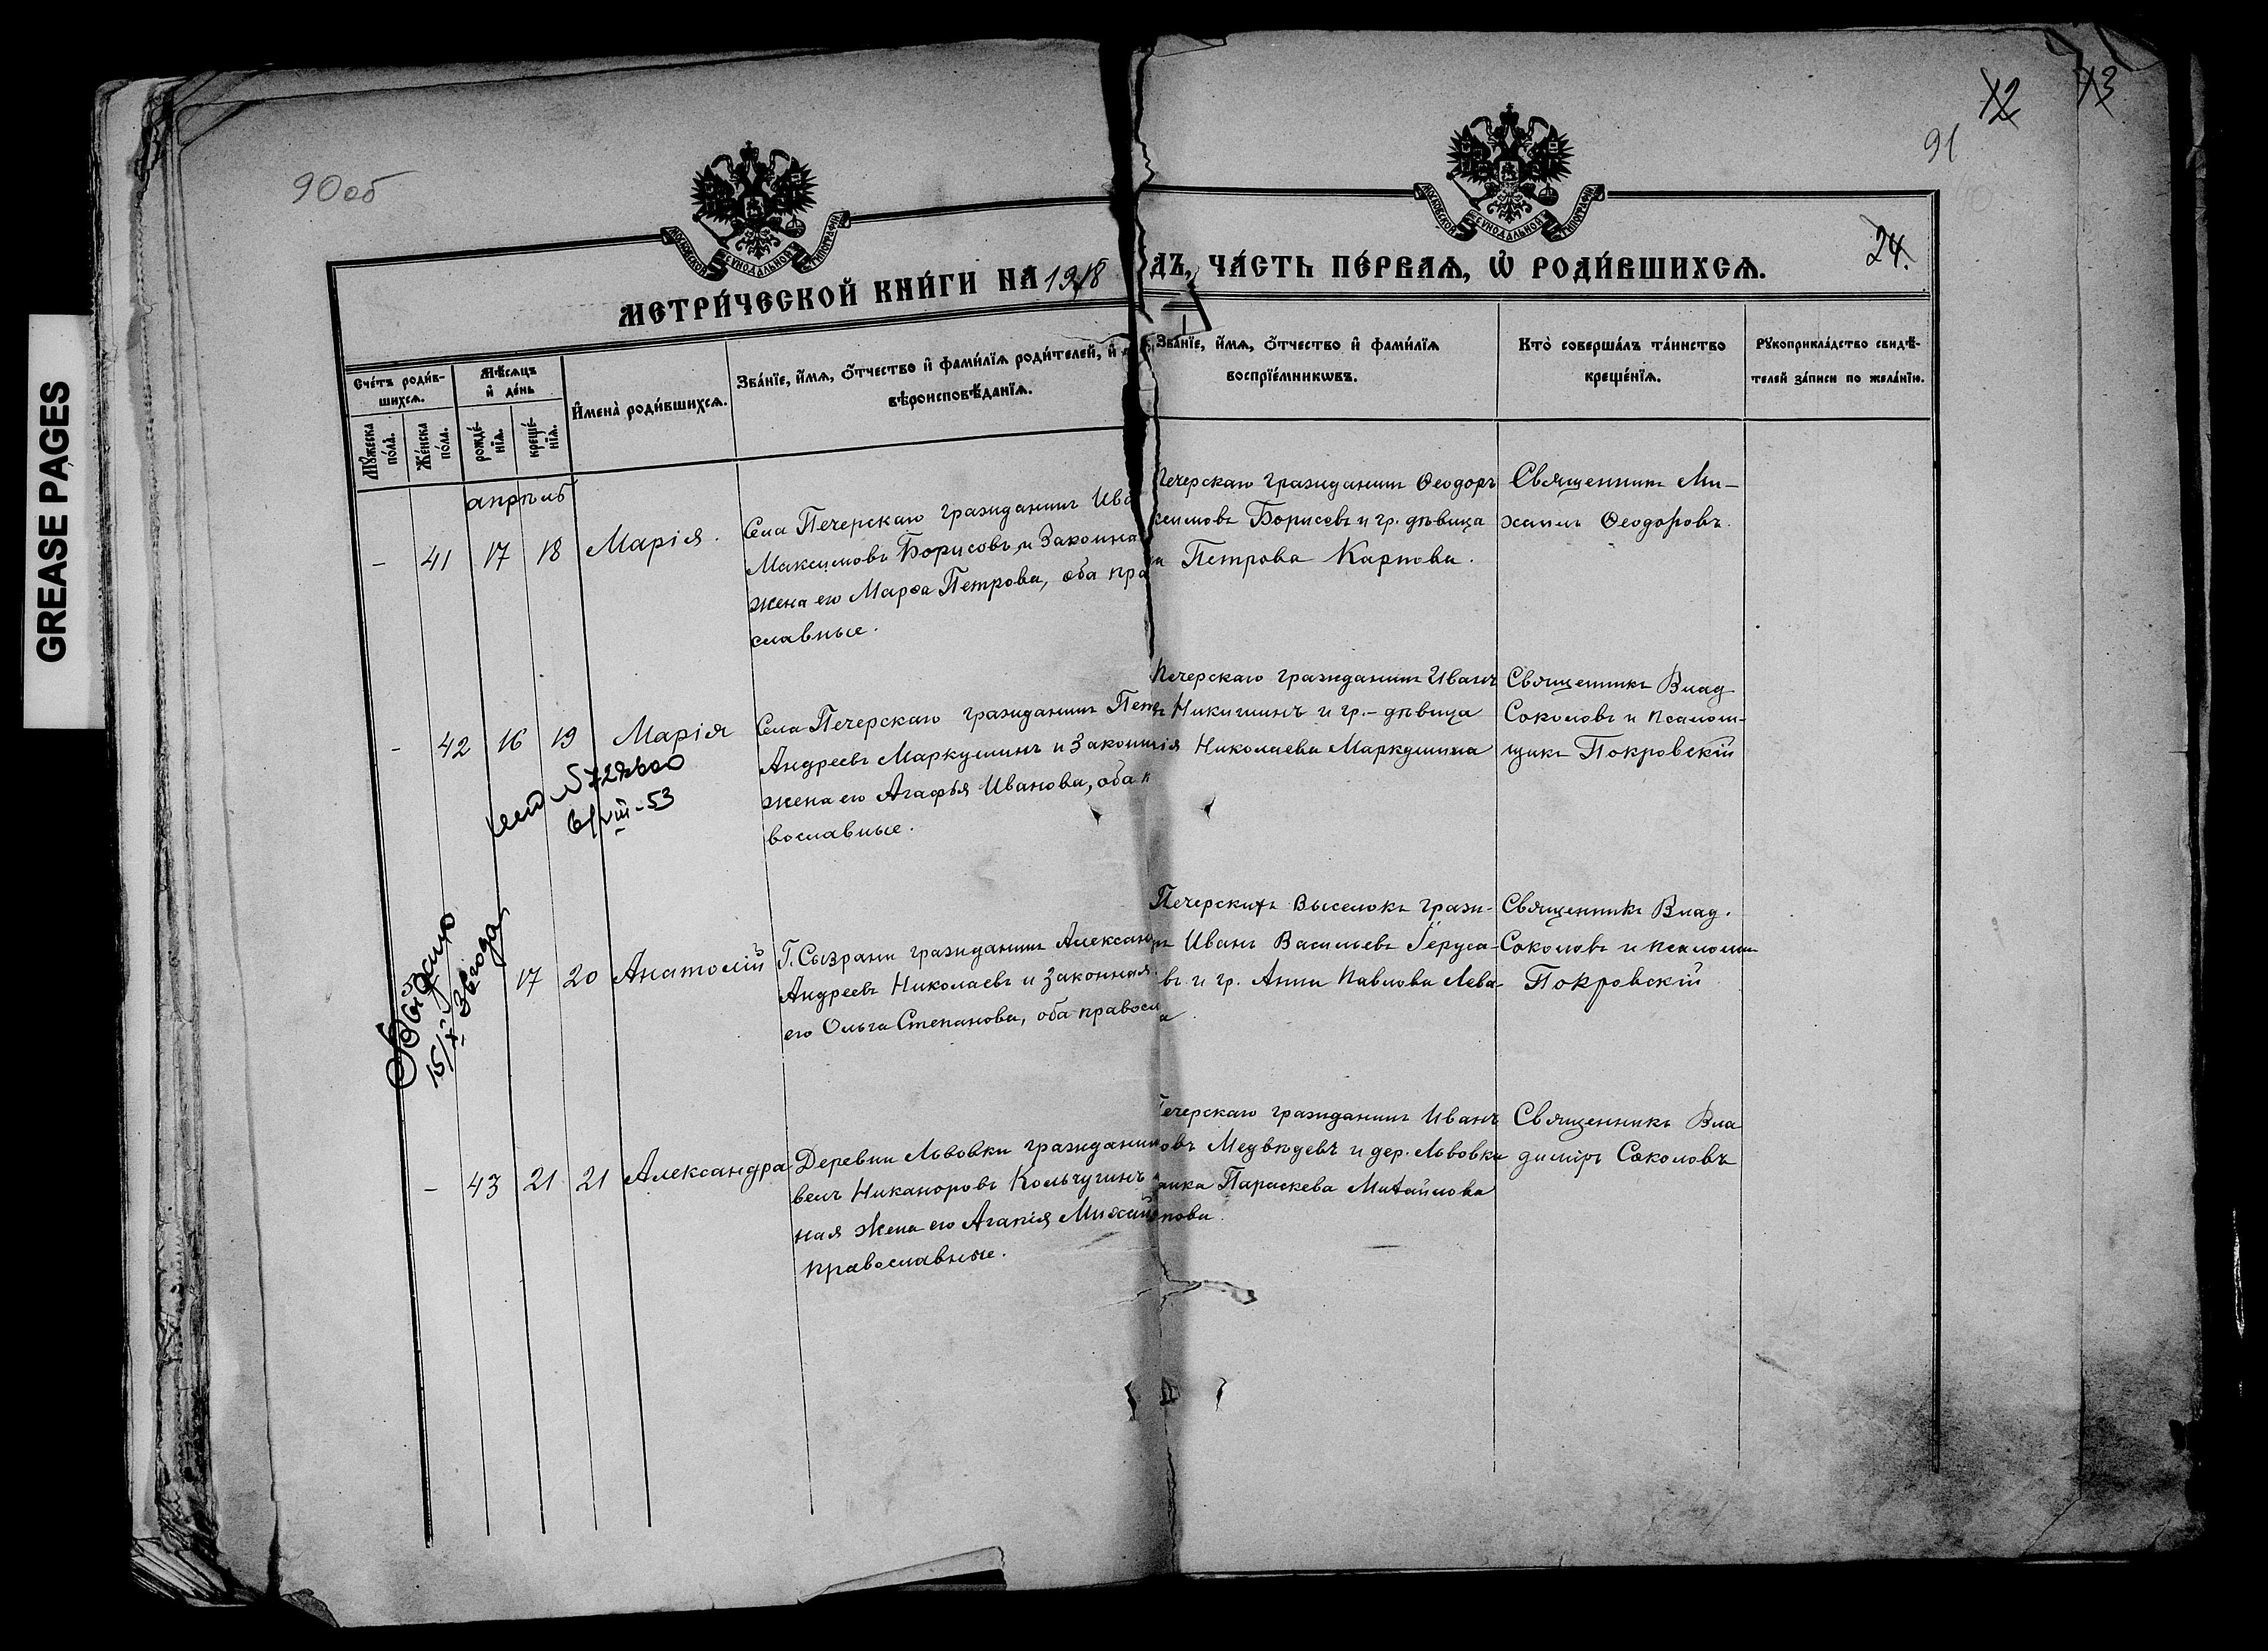 GREASE PAGES
90об
91
12
13
24.
МОСКОВСКОЙ СѴНОДАЛЬНОЙ ТИПОГРАФІИ
МОСКОВСКОЙ СѴНОДАЛЬНОЙ ТИПОГРАФІИ
МЕТРИ́ЧЕСКОЙ КНИ́ГИ НА 1918
ДЪ, ЧА́СТЬ ПЕ́РВАѦ, Ѡ҆ РОДИ́ВШИХСѦ.
Сче́тъ роди́в-
шихсѧ.
Мꙋ́жеска по́ла.
Же́нска по́ла.
Мѣ́сѧцъ и҆ де́нь
рожде́-нїѧ.
креще́-нїѧ.
И҆мена̀ роди́вшихсѧ.
Зва́нїе, и҆́мѧ, ѻ҆́тчество и҆ фами́лїѧ роди́телей, и҆
вѣроисповѣ́данїѧ.
Зва́нїе, и҆́мѧ, ѻ҆́тчество и҆ фами́лїѧ
воспрїе́мникѡвъ.
Кто̀ соверша́лъ та́инство
креще́нїѧ.
Рꙋкоприкла́дство свидѣ́-
телей за́писи по жела́нїю.
апрѣль
- 41 17 18 Марія.
Села Печерскаго гражданинъ Ива
Максимовъ Борисовъ и законна
жена его Марѳа Петрова, оба пра
славные.
Печерскаго гражданинъ Ѳеодоръ
ксимовъ Борисовъ и гр. дѣвица
Петрова Карпова.
Священникъ Ми-
хаилъ Ѳеодоровъ.
- 42 16 19 Марія
6/VIII-53
Села Печерскаго гражданинъ Пет
Андреевъ Маркушинъ и законн
жена его Агафья Иванова, оба п
вославные.
Печерскаго гражданинъ Иванъ
Никишинъ и гр.-дѣвица
ія Николаева Маркушина
Священникъ Влад
Соколовъ и псалом-
щикъ Покровскій
15/X 36 года
17 20 Анатолій
Г. Сызрани гражданинъ Александ
Андреевъ Николаевъ и законная
его Ольга Степанова, оба правосл
Печерскихъ Выселокъ граж-
нъ Иванъ Васильевъ Іеруса-
въ и гр. Анна Павлова Лева-
а.
Священникъ Влад.
Соколовъ и псаломщ
Покровскій
- 43 21 21 Александра
Деревни Львовки гражданин
велъ Никаноровъ Кольчугинъ
ная жена его Агапія Михай
православные.
Печерскаго гражданинъ Иванъ
овъ Медвѣдевъ и дер. Львовки
анка Параскева Михайлова
нова.
Священникъ Вла
димiръ Соколовъ